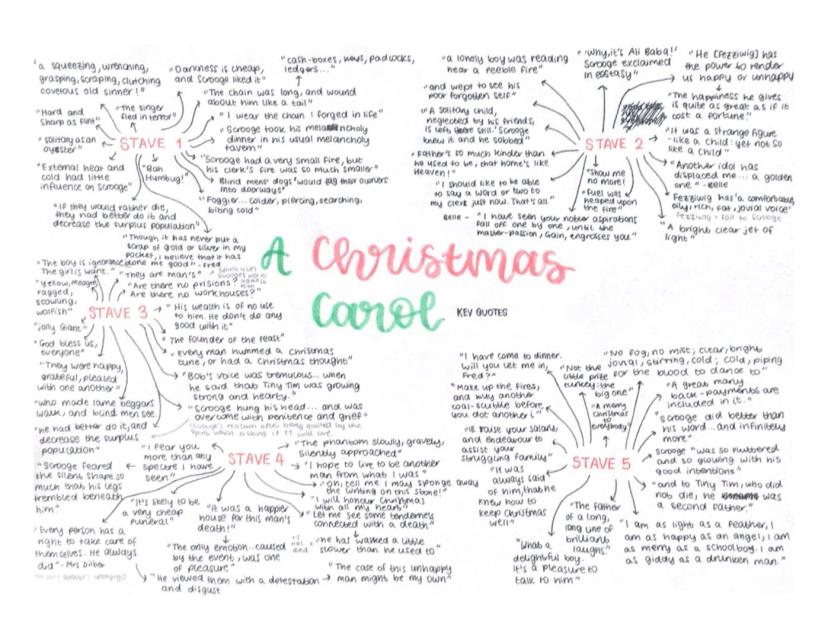 "a squeezing, wrenching,
grasping, scraping, clutching
covetous old sinner!"
"Darkness is cheap,
and Scrooge liked it"
"cash-boxes, keys, padlocks,
ledgers..."
"The chain was long, and wound
about him like a tail"
"Hard and
sharp as flint"
"the singer
fled in terror"
"I wear the chain I forged in life"
"Scrooge took his melancholy
dinner in his usual melancholy
tavern"
"solitary as an
oyster"
STAVE 1
"Scrooge had a very small fire, but
his clerk's fire was so much smaller"
"External heat and
cold had little
influence on Scrooge"
"Bah
Humbug!"
Blind mens' dogs "would tug their owners
into doorways"
"Foggier... colder, piercing, searching,
biting cold"
"If they would rather die,
they had better do it and
decrease the surplus population"
"Though it has never put a
scrap of gold or silver in my
pocket, I believe that it has
done me good" - Fred
"a lonely boy was reading
near a feeble fire"
"Why, it's Ali Baba!"
Scrooge exclaimed
in ecstasy"
"He [Fezziwig] has
the power to render
us happy or unhappy
"and wept to see his
poor forgotten self"
"The happiness he gives
is quite as great as if it
cost a fortune"
"A solitary child,
neglected by his friends,
is left there still." Scrooge
knew it and he sobbed"
STAVE 2
"It was a strange figure
- like a child: yet not so
like a child"
"Father's so much kinder than
he used to be, that home's like
Heaven!"
"Show me
no more!
"Another idol has
displaced me... a golden
one" - Belle
"I should like to be able
to say a word or two to
my clerk just now. That's all."
"Fuel was
heaped upon
the fire"
Fezziwig has "a comfortable,
oily, rich, fat, jovial voice"
Fezziwig = foil to Scrooge
Belle - "I have seen your nobler aspirations
fall off one by one, until the
master-passion, Gain, engrosses you."
"A bright clear jet of
light"
A Christmas
Carol
KEY QUOTES
"The boy is ignorance.
The girl is want."
"They are man's"
"Are there no prisions?
Are there no workhouses?"
"Yellow, meagre,
ragged,
scowling,
wolfish"
STAVE 3
"His wealth is of no use
to him. He don't do any
good with it"
"Jolly Giant"
"The founder of the feast"
"God bless us,
everyone"
"every man hummed a christmas
tune, or had a Christmas thought"
"They were happy,
grateful, pleased
with one another"
"Bob's voice was tremulous... when
he said that Tiny Tim was growing
strong and hearty."
"who made lame beggars
walk, and blind men see."
"Scrooge hung his head... and was
overcome with penitence and grief"
"he had better do it, and
decrease the surplus
population"
"I fear you
more than any
spectre I have
seen"
STAVE 4
"The phantom slowly, gravely,
silently approached"
"I hope to live to be another
man from what I was"
"Scrooge feared
the silent shape so
much that his legs
trembled beneath
him."
"oh, tell me I may sponge away
the writing on this stone!"
"I will honour Christmas
with all my heart"
"Let me see some tenderness
connected with a death"
"It's likely to be
a very cheap
funeral"
"It was a happier
house for this man's
death!"
"he has walked a little
slower than he used to"
"Every person has a
right to take care of
themselves. He always
did" - Mrs Dilber
"The only emotion... caused
by the event, was one
of pleasure"
"He viewed them with a detestation
and disgust
"The case of this unhappy
man might be my own"
"I have come to dinner.
Will you let me in,
Fred?"
"Not the
little prize
turkey: the
big one"
"No fog, no mist; clear, bright
jovial, stirring, cold; cold, piping
for the blood to dance to"
"Make up the fires,
and buy another
coal-scuttle before
you dot another i"
"A merry
Christmas
to
everybody!"
"A great many
back-payments are
included in it."
"Scrooge did better than
his word... and infinitely
more"
"I'll raise your salary,
and endeavour to
assist your
struggling family"
STAVE 5
Scrooge "was so fluttered
and so glowing with his
good intentions"
"It was
always said
of him, that he
knew how to
keep Christmas
well"
"and to Tiny Tim, who did
not die, he was
a second father."
"The father
of a long,
long line of
brilliant
laughs"
"What a
delightful boy.
It's a pleasure to
talk to him"
"I am as light as a feather, I
am as happy as an angel, I am
as merry as a schoolboy. I am
as giddy as a drunken man."